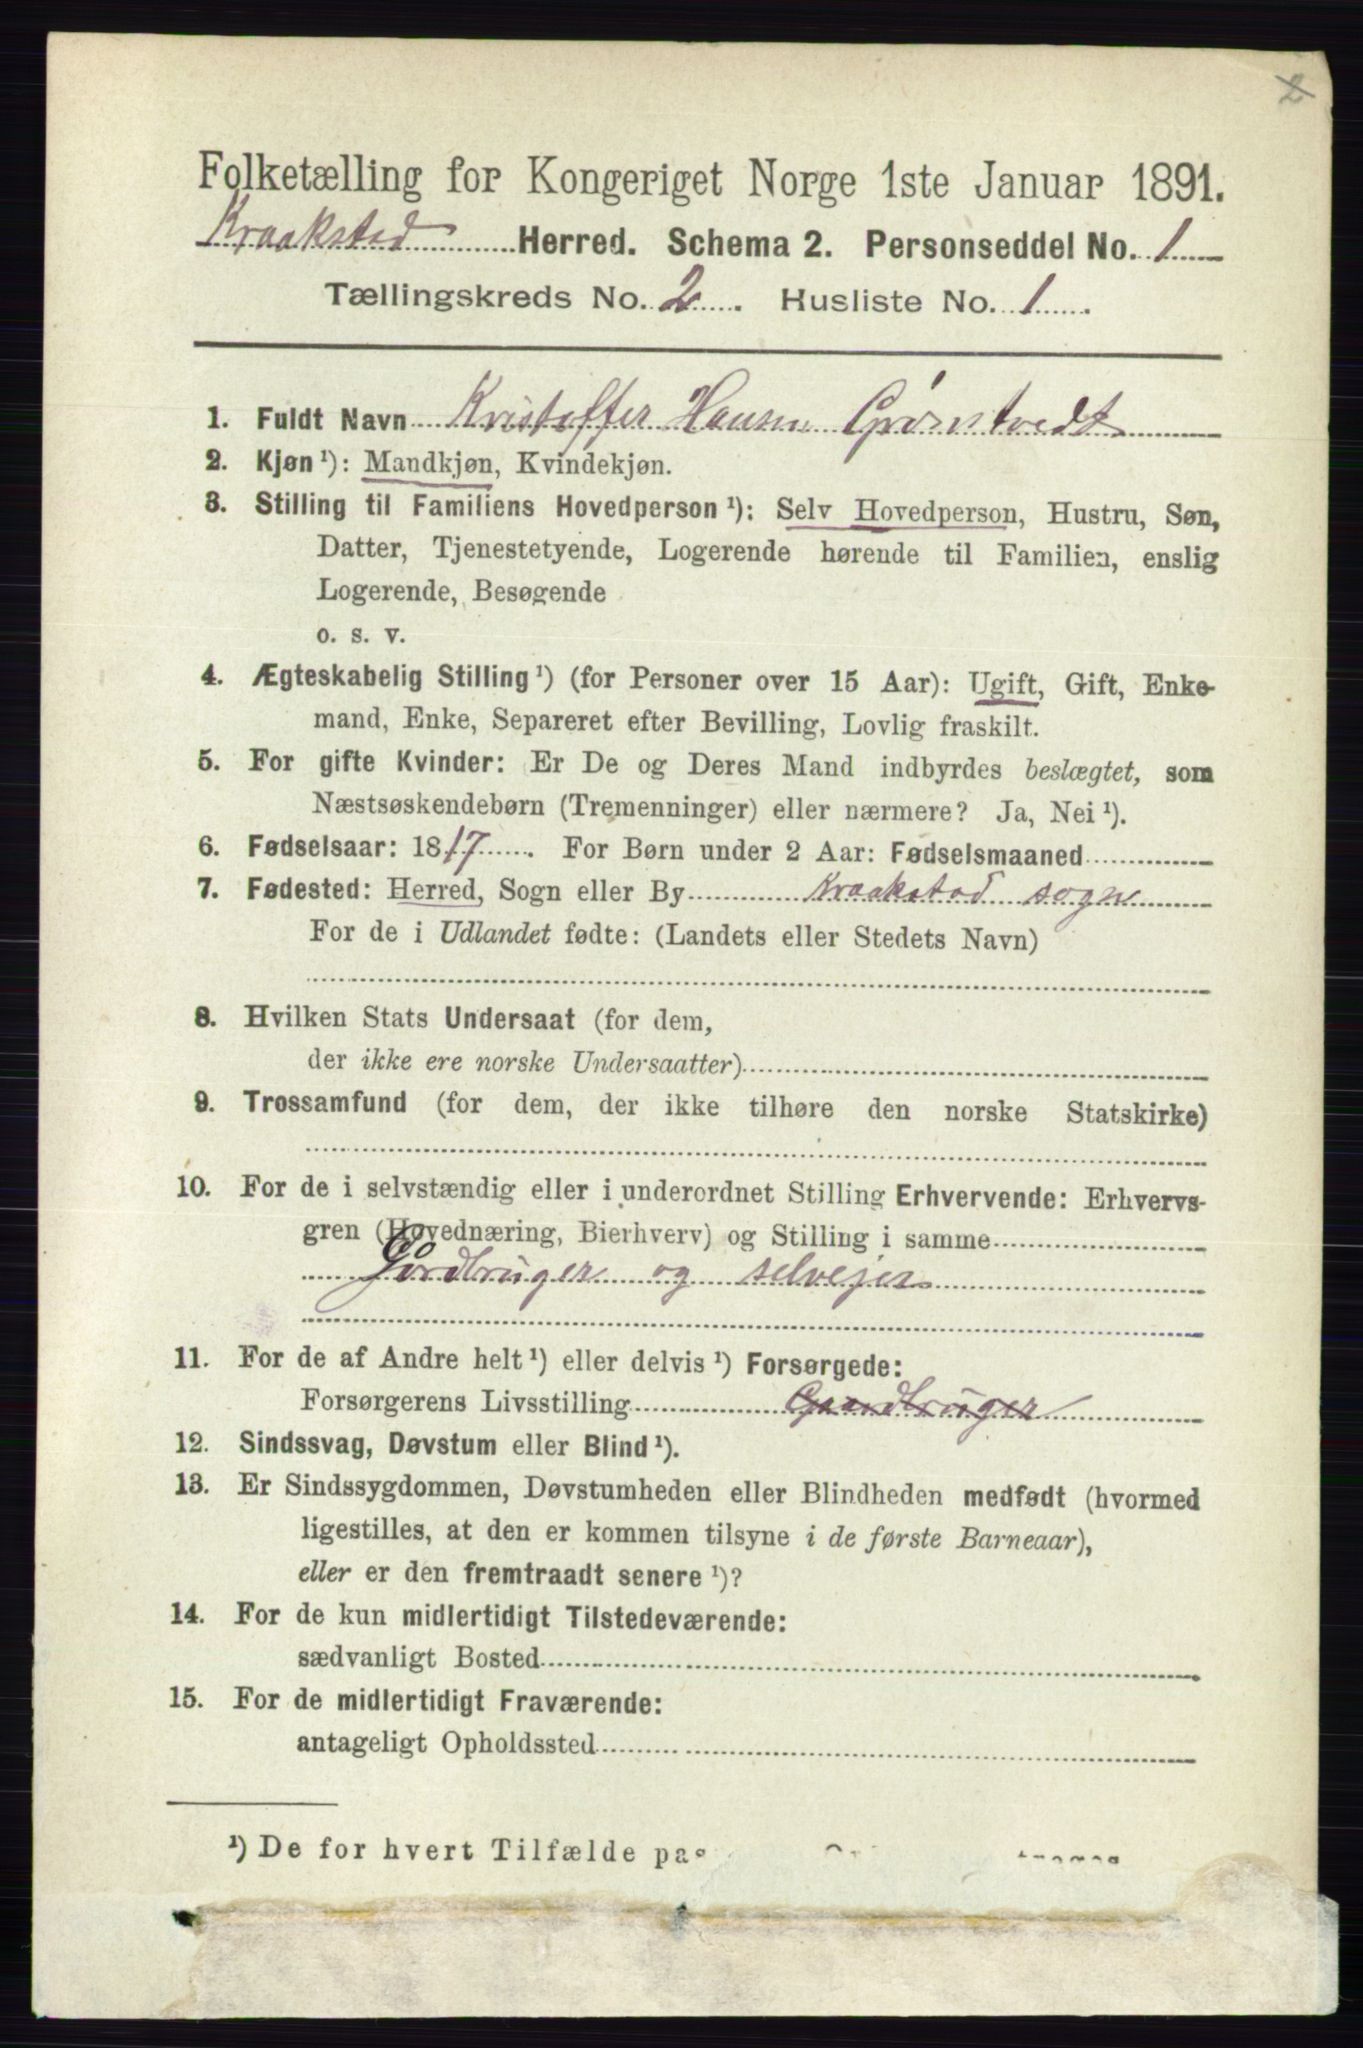 2
Folketælling for Kongeriget Norge 1ste Januar 1891.
Kraakstad Herred. Schema 2. Personseddel No. 1
Tællingskreds No. 2. Husliste No. 1.
1. Fuldt Navn Kristoffer Hansen Grønstvedt
2. Kjøn ¹): Mandkjøn, Kvindekjøn.
3. Stilling til Familiens Hovedperson ¹): Selv Hovedperson, Hustru, Søn,
Datter, Tjenestetyende, Logerende hørende til Familien, enslig
Logerende, Besøgende
o. s. v.
4. Ægteskabelig Stilling ¹) (for Personer over 15 Aar): Ugift, Gift, Enke-
mand, Enke, Separeret efter Bevilling, Lovlig fraskilt.
5. For gifte Kvinder: Er De og Deres Mand indbyrdes beslægtet, som
Næstsøskendebørn (Tremenninger) eller nærmere? Ja, Nei ¹).
6. Fødselsaar: 1817. For Børn under 2 Aar: Fødselsmaaned
7. Fødested: Herred, Sogn eller By Kraakstad sogn
For de i Udlandet fødte: (Landets eller Stedets Navn)
8. Hvilken Stats Undersaat (for dem,
der ikke ere norske Undersaatter)
9. Trossamfund (for dem, der ikke tilhøre den norske Statskirke)
10. For de i selvstændig eller i underordnet Stilling Erhvervende: Erhvervs-
gren (Hovednæring, Bierhverv) og Stilling i samme
Gordbruger og selvejer
11. For de af Andre helt ¹) eller delvis ¹) Forsørgede:
Forsørgerens Livsstilling Gaardbruger
12. Sindssvag, Døvstum eller Blind ¹).
13. Er Sindssygdommen, Døvstumheden eller Blindheden medfødt (hvormed
ligestilles, at den er kommen tilsyne i de første Barneaar),
eller er den fremtraadt senere ¹)?
14. For de kun midlertidigt Tilstedeværende:
sædvanligt Bosted
15. For de midlertidigt Fraværende:
antageligt Opholdssted
¹) De for hvert Tilfælde